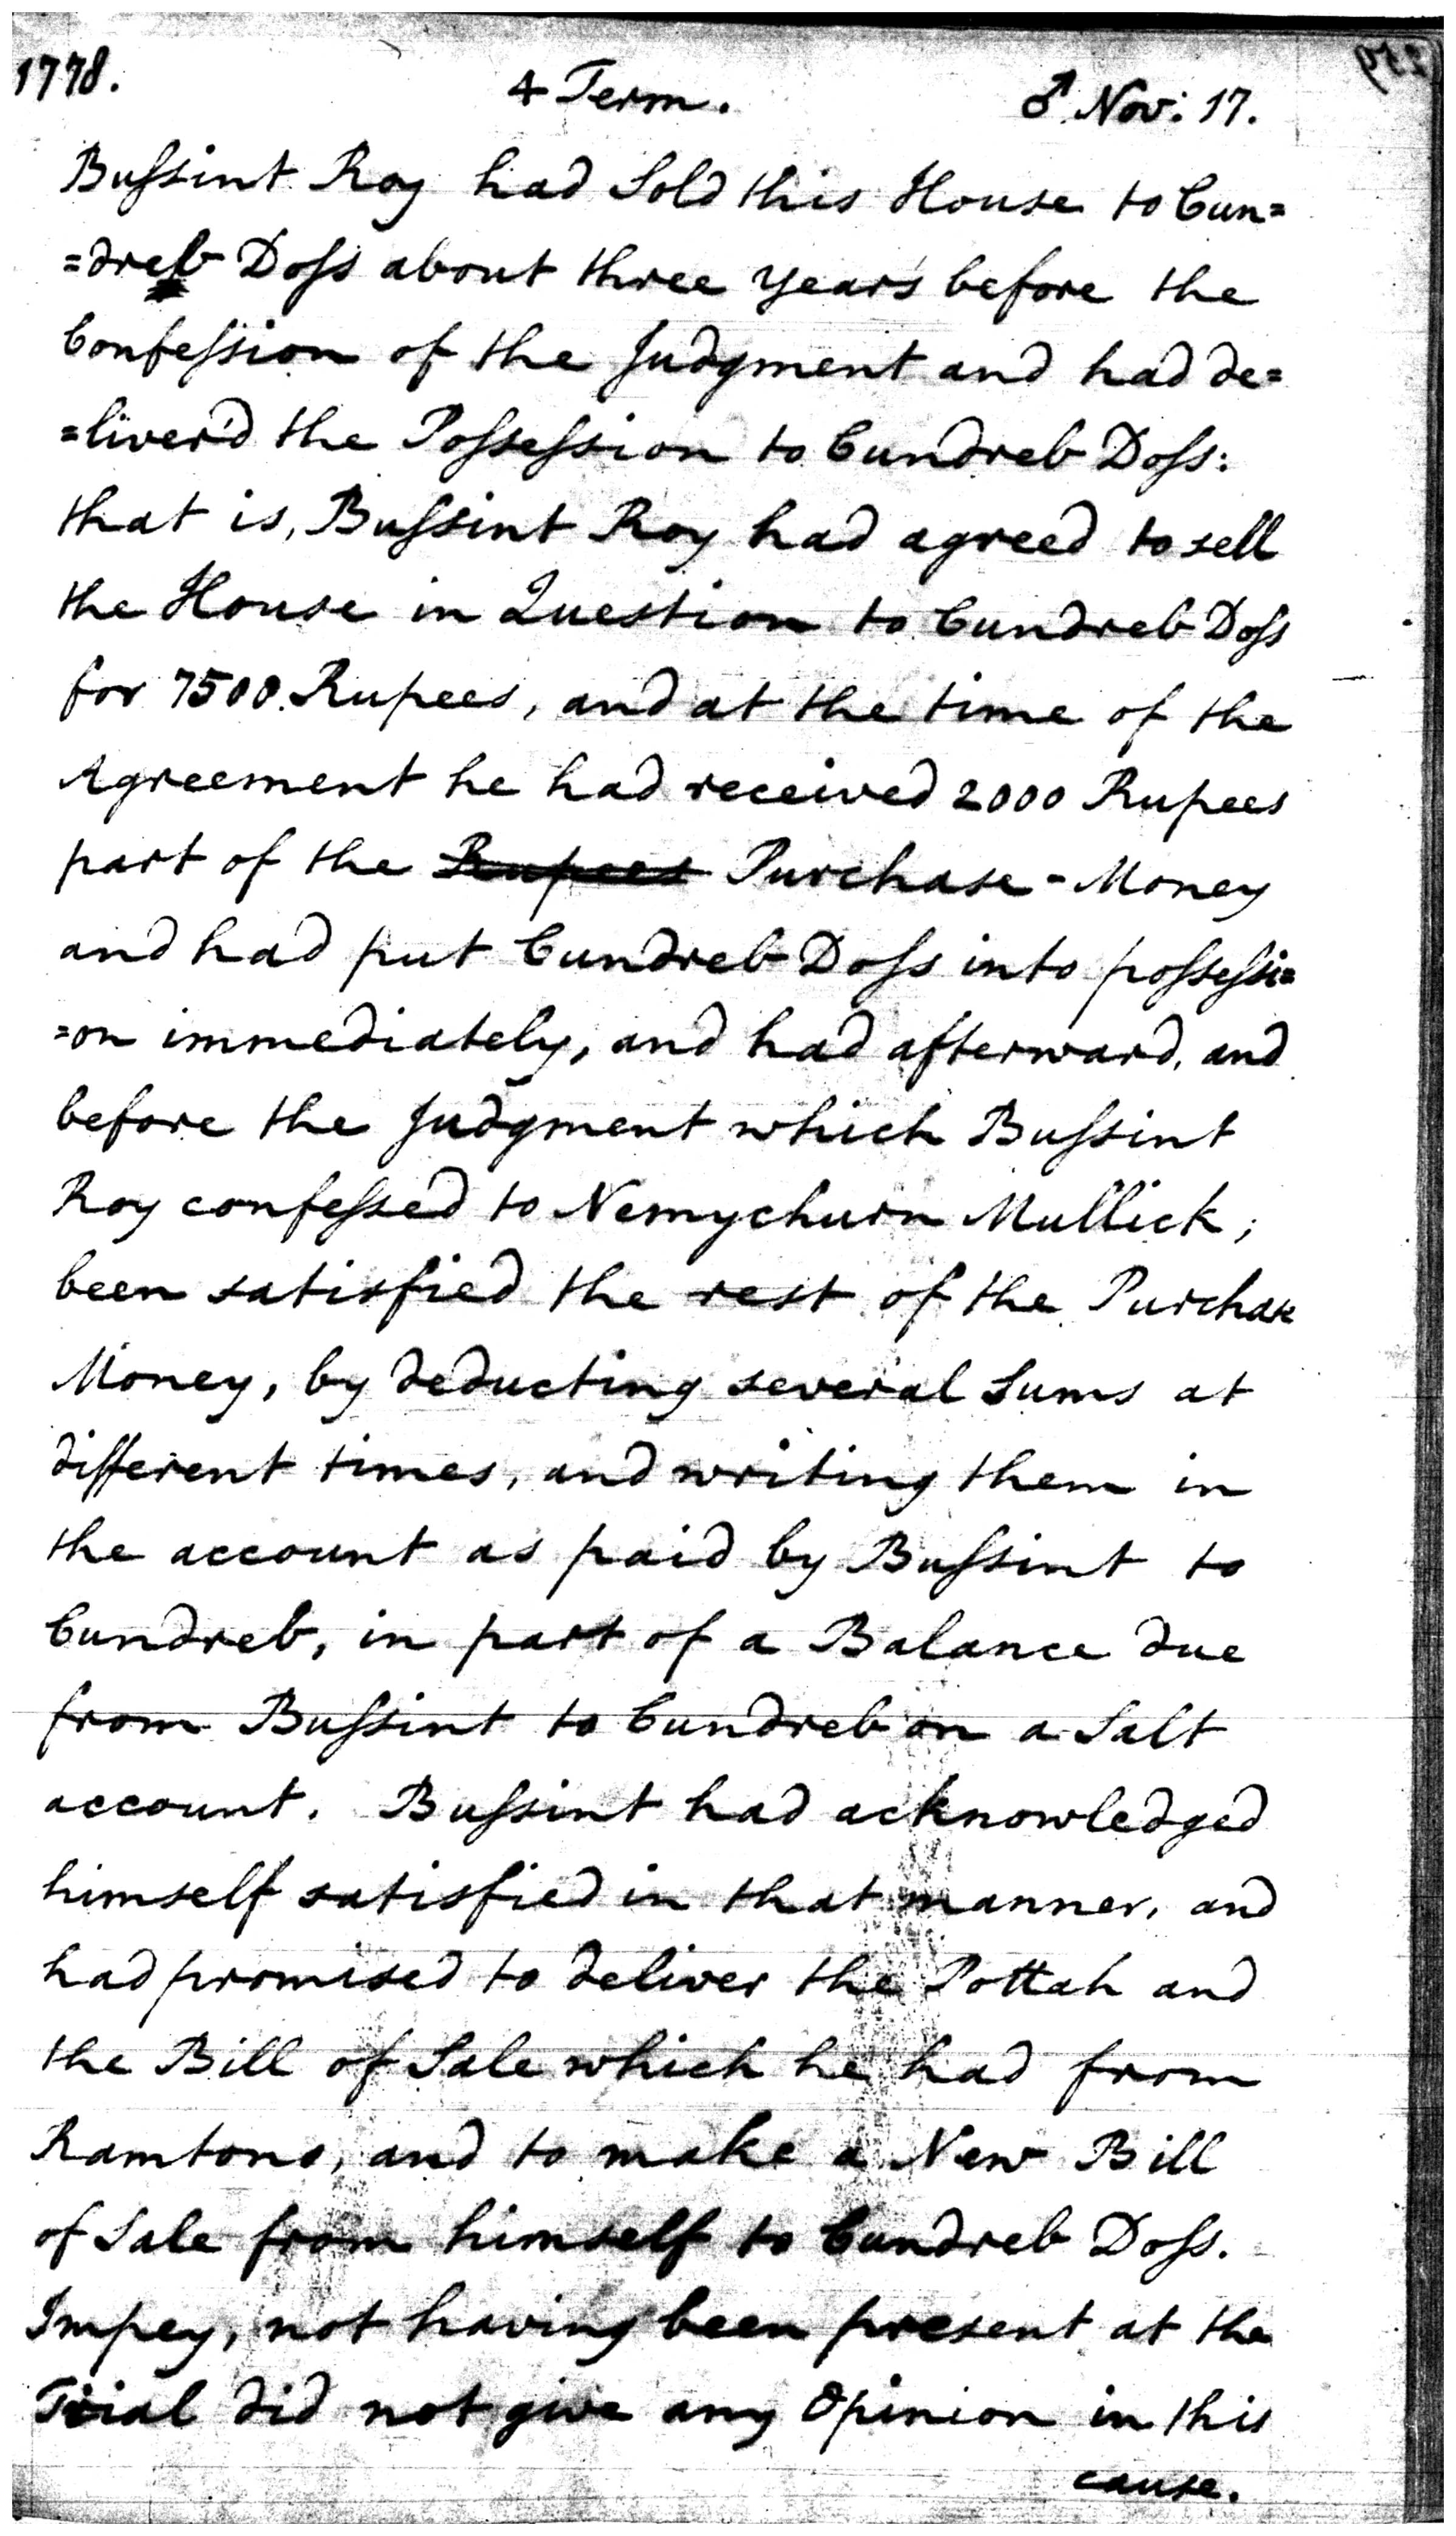 1778. 4 Term. ♂ Nov: 17.
Bussint Roy had Sold this House to Cun=
=dreb Doss about three years before the
Confession of the Judgment and had de=
=liver'd the Possession to Cundreb Doss:
that is, Bussint Roy had agreed to sell
the House in Question to Cundreb Doss
for 7500. Rupees, and at the time of the
Agreement he had received 2000 Rupees
part of the Rupees Purchase-Money
and had put Cundreb Doss into possessi=
=on immediately, and had afterward, and
before the Judgment which Bussint
Roy confessed to Nemychurn Mullick;
been satisfied the rest of the Purchase
Money, by deducting several Sums at
different times, and writing them in
the account as paid by Bussint to
Cundreb, in part of a Balance due
from Bussint to Cundreb on a Salt
account. Bussint had acknowledged
himself satisfied in that manner, and
had promised to deliver the Pottah and
the Bill of Sale which he had from
Ramtono, and to make a New Bill
of Sale from himself to Cundreb Doss.
Impey, not having been present at the
Trial did not give any Opinion in this
cause.